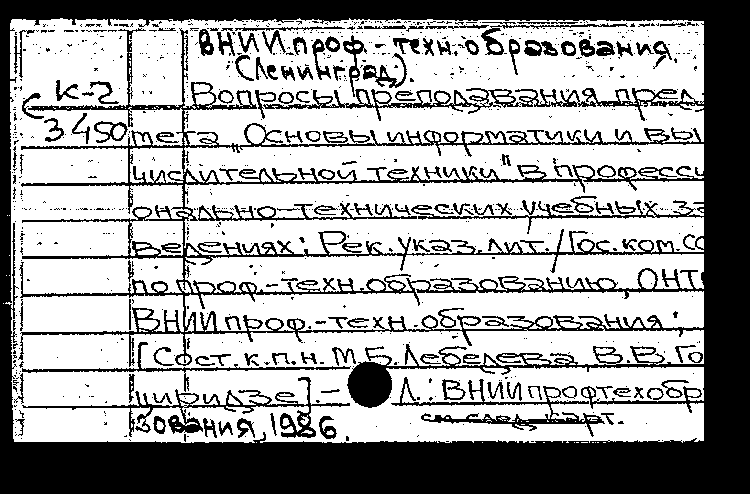 ВНИИ проф.-техн. образования
(Ленинград).
К-2 Вопросы преподавания пред
3450 мета „Основы информатики и вы
числительной техники" в професси
онально-технических учебных за
ведениях: Рек. указ. лит. / Гос. ком. СС
по проф.-техн. образованию, ОНТ
ВНИИ проф.-техн. образования;
[Сост. к.п.н. М.Б. Лебедева, В.В. Го
циридзе]. – Л.: ВНИИ профтехобр
зования, 1986. см. след. карт.